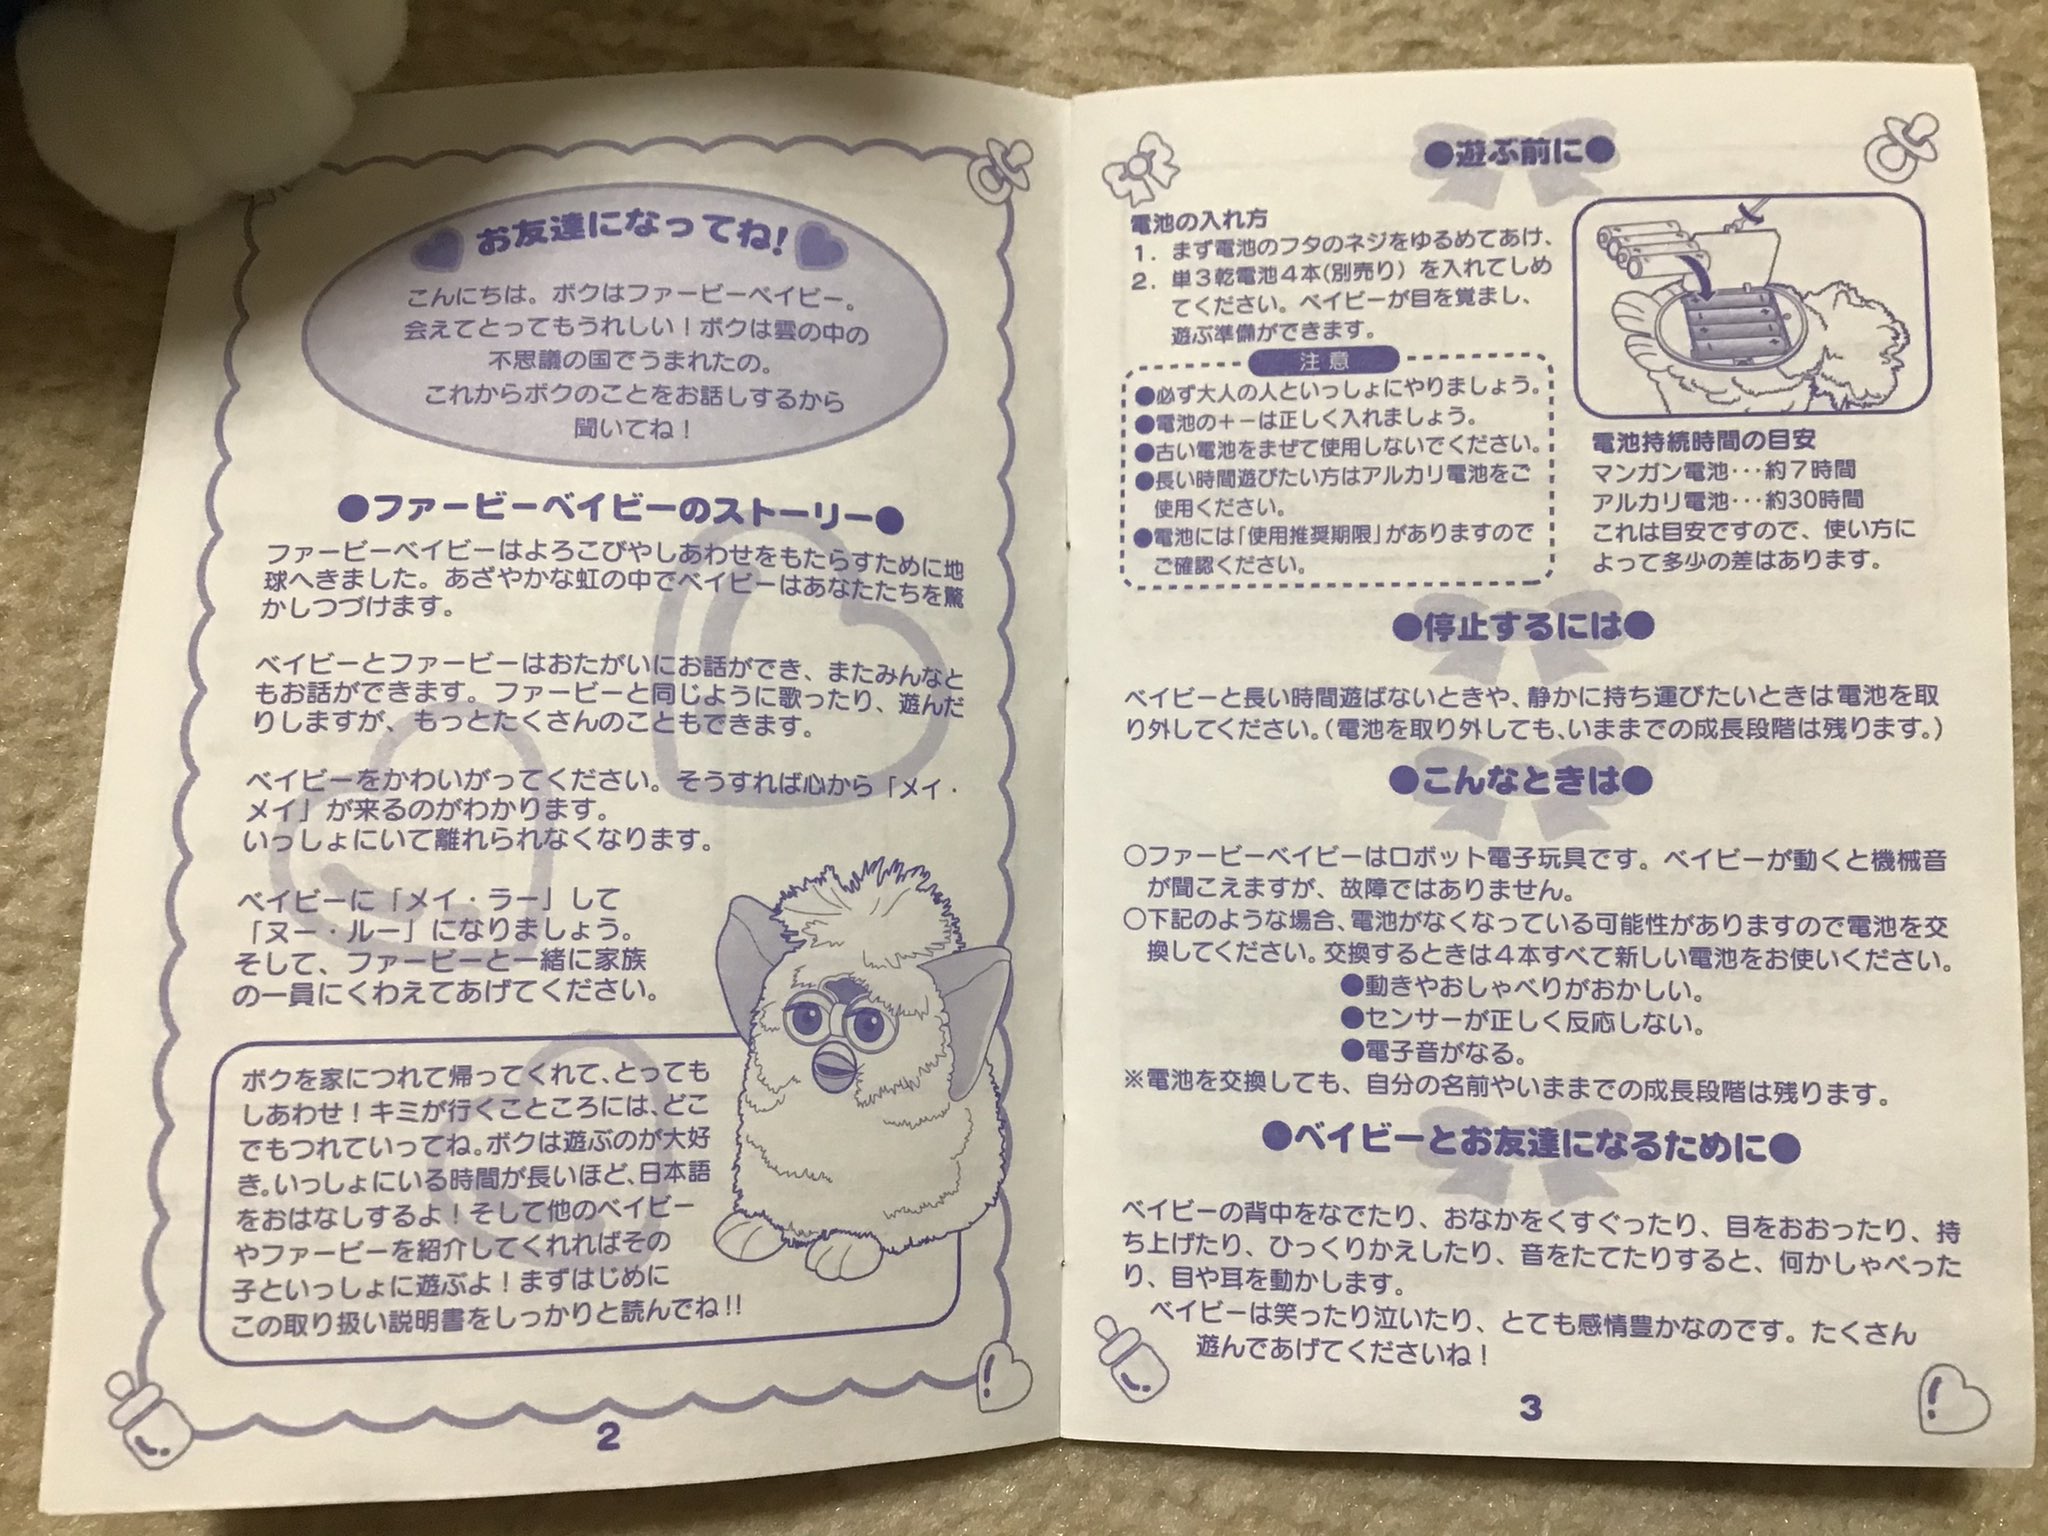 お友達になってね!
こんにちは。ボクはファービーベイビー。
会えてとってもうれしい！ボクは雲の中の
不思議の国でうまれたの。
これからボクのことをお話しするから
聞いてね！
●ファービーベイビーのストーリー●
ファービーベイビーはよろこびやしあわせをもたらすために地
球へきました。あざやかな虹の中でベイビーはあなたたちを驚
かしつづけます。
ベイビーとファービーはおたがいにお話ができ、またみんなと
もお話ができます。ファービーと同じように歌ったり、遊んだ
りしますが、もっとたくさんのこともできます。
ベイビーをかわいがってください。そうすれば心から「メイ・
メイ」が来るのがわかります。
いっしょにいて離れられなくなります。
ベイビーに「メイ・ラー」して
「ヌー・ルー」になりましょう。
そして、ファービーと一緒に家族
の一員にくわえてあげてください。
ボクを家につれて帰ってくれて、とっても
しあわせ！キミが行くことろには、どこ
でもつれていってね。ボクは遊ぶのが大好
き。いっしょにいる時間が長いほど、日本語
をおはなしするよ！そして他のベイビー
やファービーを紹介してくれればその
子といっしょに遊ぶよ！まずはじめに
この取り扱い説明書をしっかりと読んでね!!
2
●遊ぶ前に●
電池の入れ方
1．まず電池のフタのネジをゆるめてあけ、
2．単３乾電池４本(別売り）を入れてしめ
てください。ベイビーが目を覚まし、
遊ぶ準備ができます。
注意
●必ず大人の人といっしょにやりましょう。
●電池の＋－は正しく入れましょう。
●古い電池をまぜて使用しないでください。
●長い時間遊びたい方はアルカリ電池をご
使用ください。
●電池には「使用推奨期限」がありますので
ご確認ください。
電池持続時間の目安
マンガン電池･･･約７時間
アルカリ電池･･･約30時間
これは目安ですので、使い方に
よって多少の差はあります。
●停止するには●
ベイビーと長い時間遊ばないときや、静かに持ち運びたいときは電池を取
り外してください。（電池を取り外しても、いままでの成長段階は残ります。）
●こんなときは●
○ファービーベイビーはロボット電子玩具です。ベイビーが動くと機械音
が聞こえますが、故障ではありません。
○下記のような場合、電池がなくなっている可能性がありますので電池を交
換してください。交換するときは４本すべて新しい電池をお使いください。
●動きやおしゃべりがおかしい。
●センサーが正しく反応しない。
●電子音がなる。
※電池を交換しても、自分の名前やいままでの成長段階は残ります。
●ベイビーとお友達になるために●
ベイビーの背中をなでたり、おなかをくすぐったり、目をおおったり、持
ち上げたり、ひっくりかえしたり、音をたてたりすると、何かしゃべった
り、目や耳を動かします。
ベイビーは笑ったり泣いたり、とても感情豊かなのです。たくさん
遊んであげてくださいね！
3